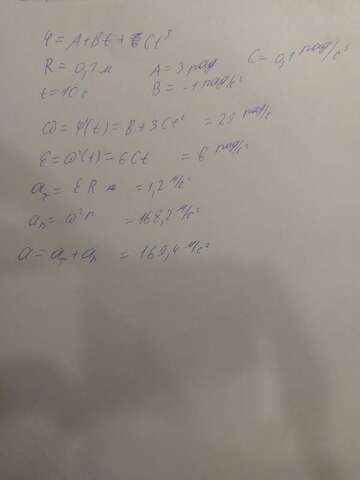 φ = A + Bt + Ct³
R = 0,2 м   A = 3 рад   C = 0,1 рад/с³
t = 10 с   B = -1 рад/с²
ω = φ'(t) = B + 3Ct² = 29 рад/с
ε = ω'(t) = 6Ct = 6 рад/с²
aτ = εR = 1,2 м/с²
an = ω²r = 168,2 м/с²
a = aτ + an = 169,4 м/с²